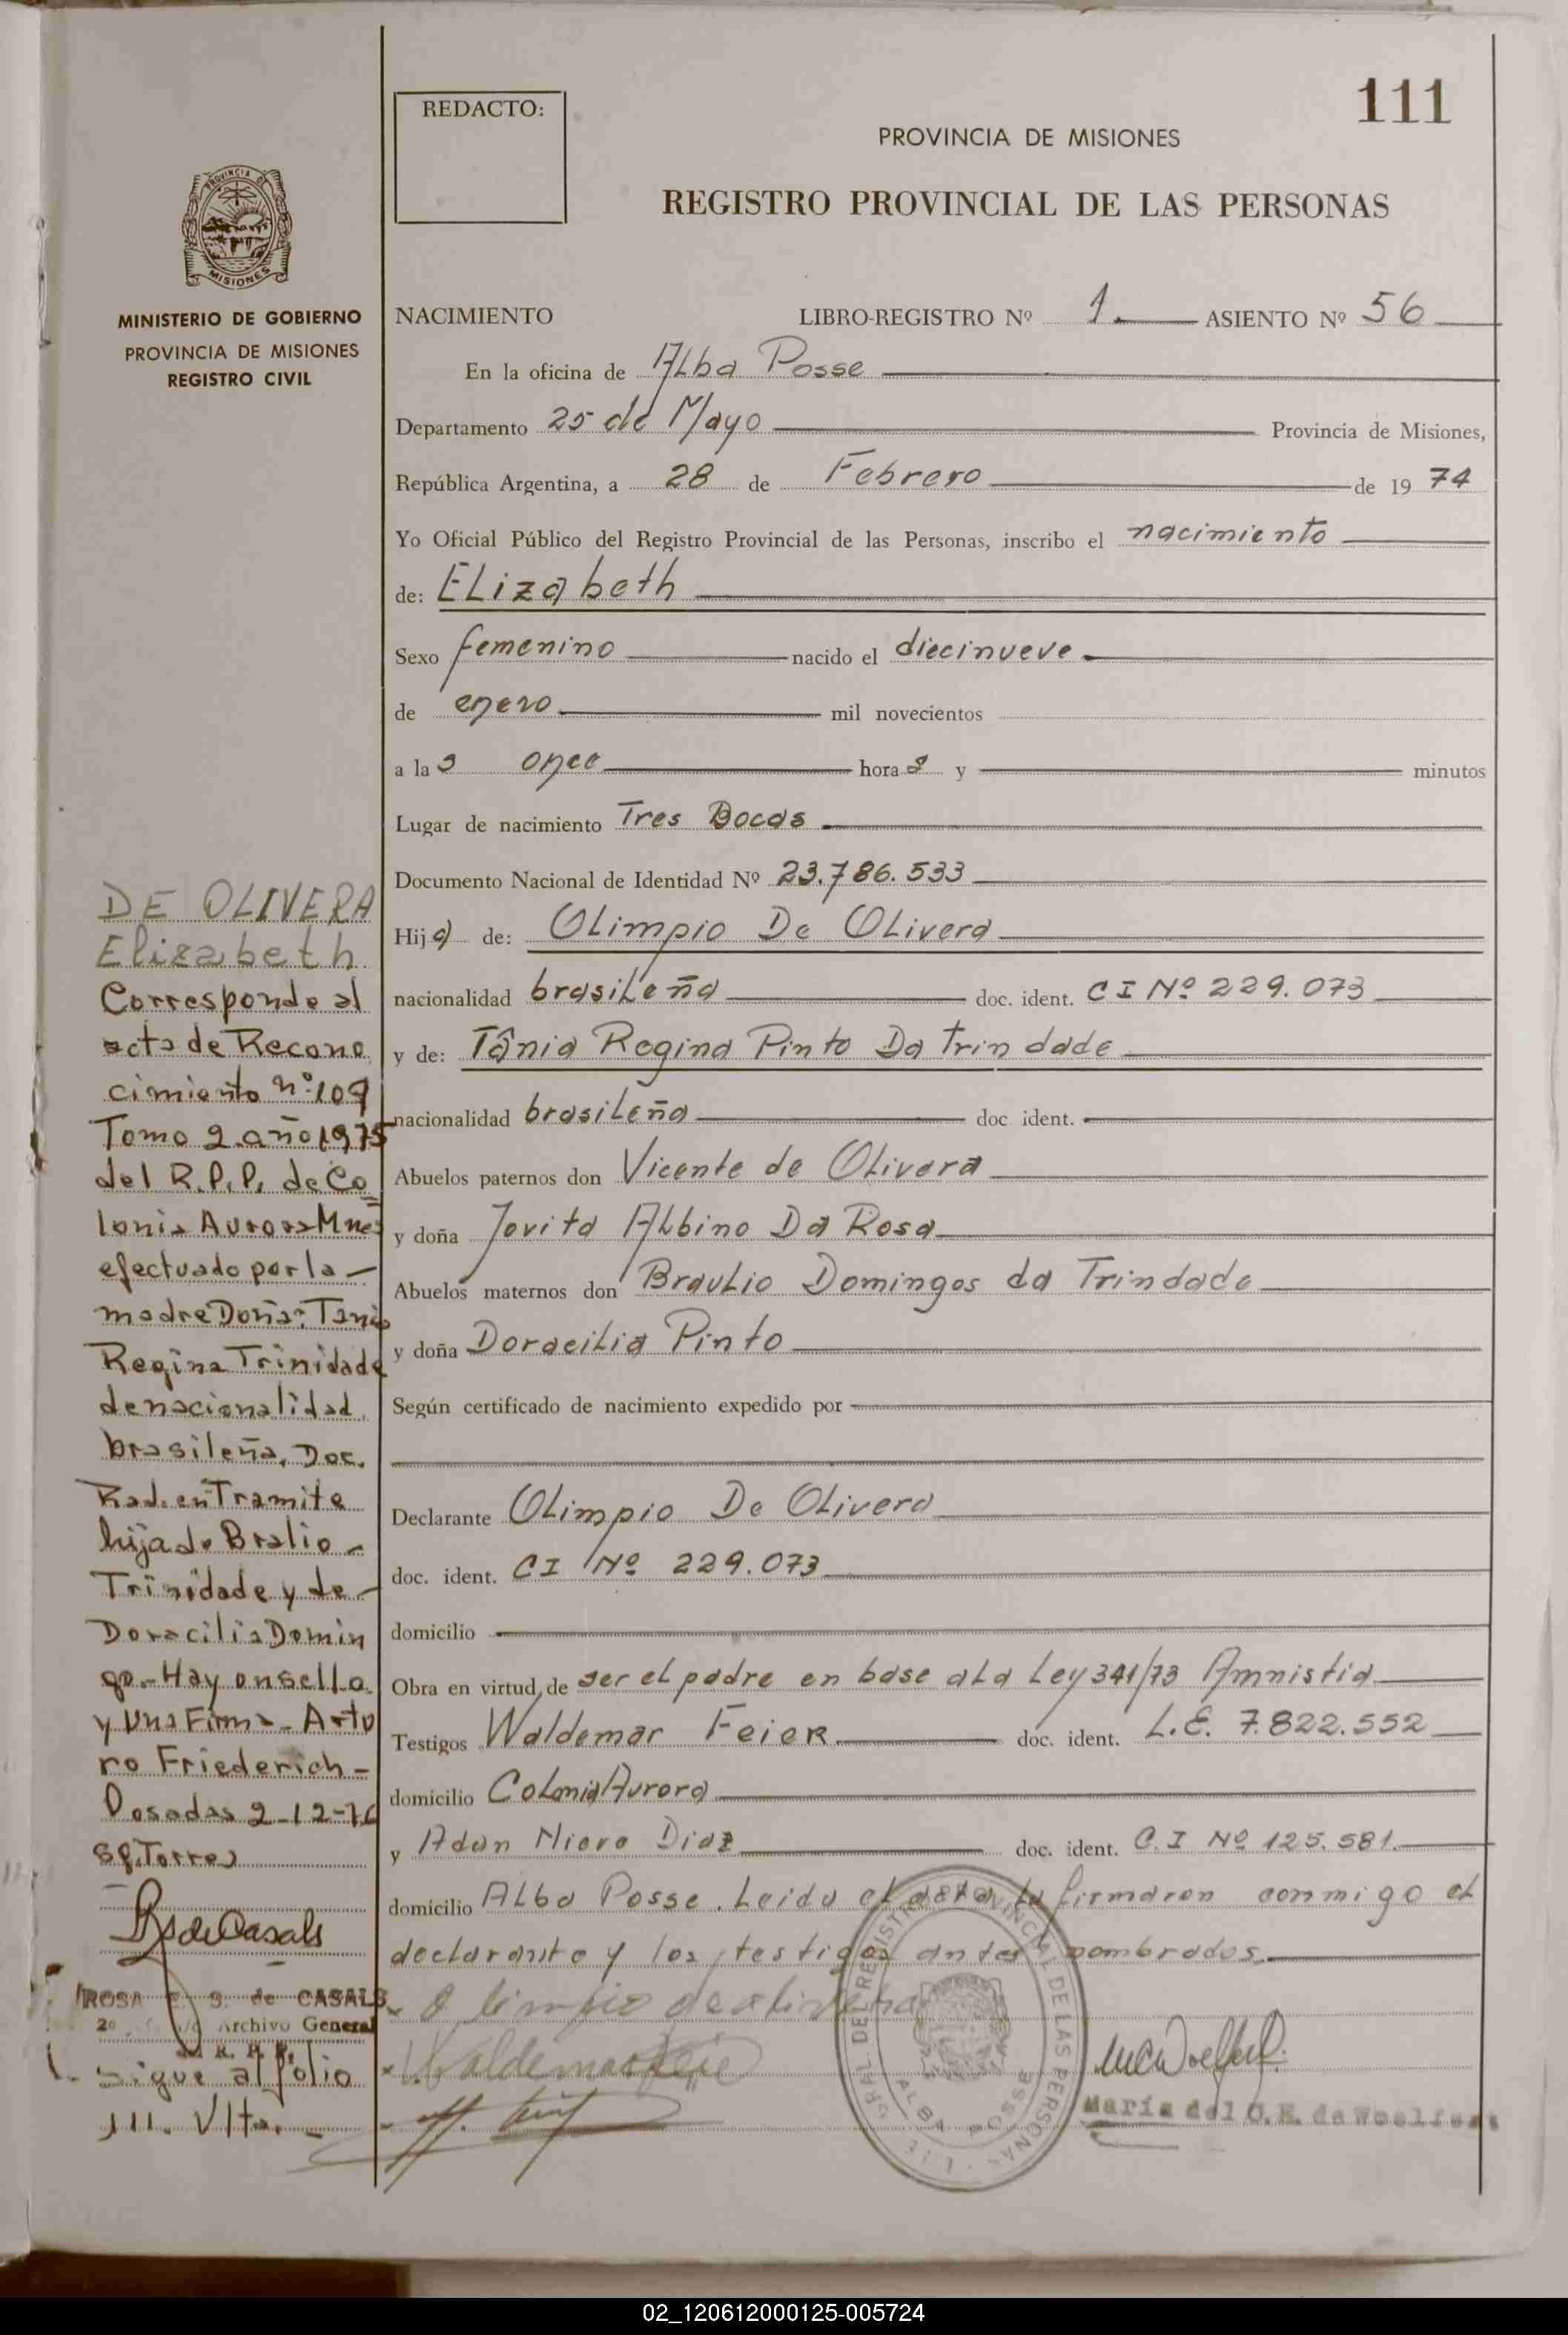 111
REDACTO:
PROVINCIA DE MISIONES
REGISTRO PROVINCIAL DE LAS PERSONAS
PROVINCIA DE
MISIONES
MINISTERIO DE GOBIERNO
PROVINCIA DE MISIONES
REGISTRO CIVIL
NACIMIENTO LIBRO-REGISTRO Nº 1. ASIENTO Nº 56
En la oficina de Alba Posse
Departamento 25 de Mayo Provincia de Misiones,
República Argentina, a 28 de Febrero de 19 74
Yo Oficial Público del Registro Provincial de las Personas, inscribo el nacimiento
de: ELizabeth
Sexo femenino nacido el diecinueve
de enero mil novecientos
a las once horas y minutos
Lugar de nacimiento Tres Bocas
Documento Nacional de Identidad Nº 23.786.533
Hija de: Olimpio De Olivera
nacionalidad brasileña doc. ident. CI Nº 229.073
y de: Tânia Regina Pinto Da Trindade
nacionalidad brasileña doc ident.
Abuelos paternos don Vicente de Olivera
y doña Jovita Albino Da Rosa
Abuelos maternos don Braulio Domingos da Trindade
y doña Doracilia Pinto
Según certificado de nacimiento expedido por
Declarante Olimpio De Olivera
doc. ident. CI Nº 229.073
domicilio
Obra en virtud de ser el padre en base a La Ley 341/73 Amnistia
Testigos Waldemar Feier doc. ident. L.E. 7.822.552
domicilio Colonia Aurora
y Adan Diaz doc. ident. C.I Nº 125.581.
domicilio Alba Posse. Leida el acta la firmaron conmigo el
declarante y los testigos antes nombrados.
Olimpio de olivera
Waldemar Feier
GRAL. DEL REGISTRO PROVINCIAL DE LAS PERSONAS
ALBA POSSE
María del C. R. de Woelfert
DE OLIVERA
Elizabeth
Corresponde al
acta de Recono
cimiento nº 109
Tomo 2 año 1975
del R.P.P. de Co
lonia Aurora Mnes
efectuado por la
madre Doña: Tania
Regina Trinidade
de nacionalidad
brasileña, Doc.
Rad. en Tramite
hija de Bralio
Trinidade y de
Doracilia Domin
go.- Hay un sello
y Una Firma - Arto
ro Friederich -
Posadas 2-12-76
Sg. Torres
R de Casals
ROSA E. S. de CASALS
Archivo General
R. P. P.
Sigue al folio
111. Vlta.
02_120612000125-005724